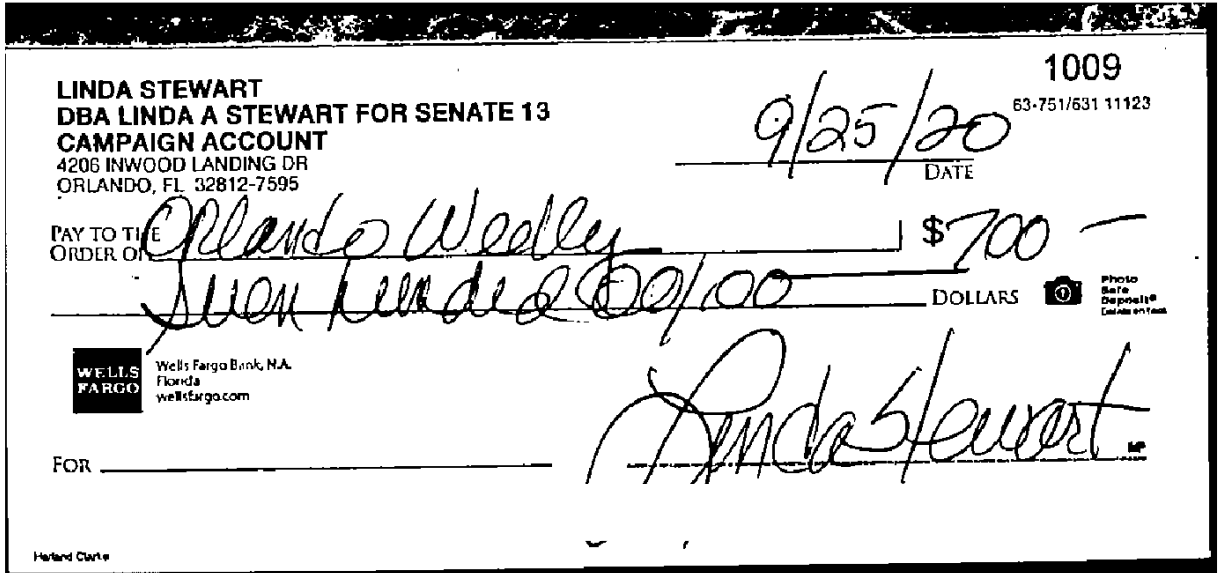 1009
LINDA STEWART
DBA LINDA A STEWART FOR SENATE 13
CAMPAIGN ACCOUNT
4206 INWOOD LANDING DR
ORLANDO, FL 32812-7595
63-751/631 11123
9/25/20
DATE
PAY TO THE ORDER OF Orlando Weekly $700 —
Seven hundred 00/00 DOLLARS
Photo
Safe
Deposit®
WELLS FARGO
Wells Fargo Bank, N.A.
Florida
wellsfargo.com
Linda Stewart
FOR
MP
Harland Clarke